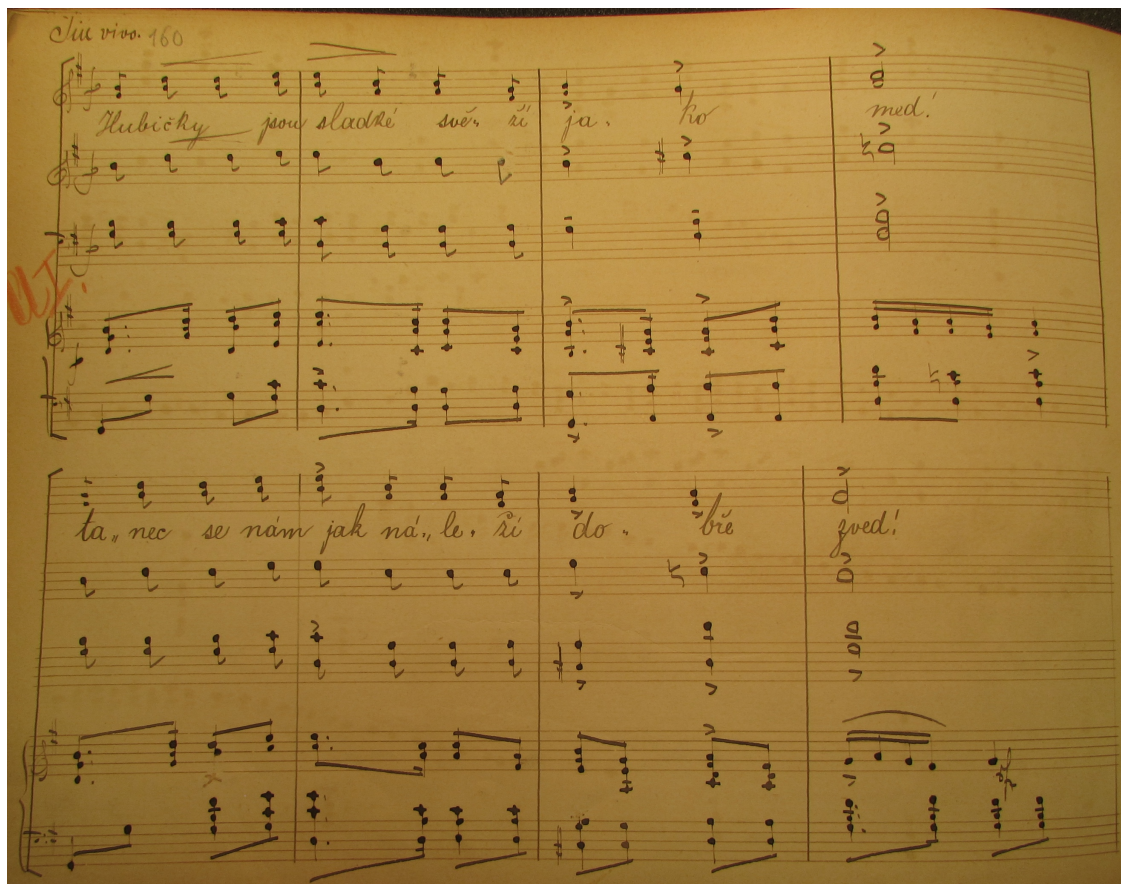 Più vivo. 160
Hubičky jsou sladké svě-ží ja-ko med!
ta-nec se nám jak ná-le-ží do-bře zved!